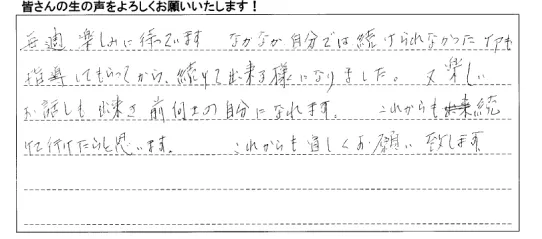 皆さんの生の声をよろしくお願いいたします！
毎週 楽しみに待っています なかなか自分では続けられなかった
指導してもらってから、続けて出来る様になりました。 又楽しい
お話しも出来き前向きの自分になれます。 これからも続
けて行けたらと思います。 これからも宜しくお願い致します